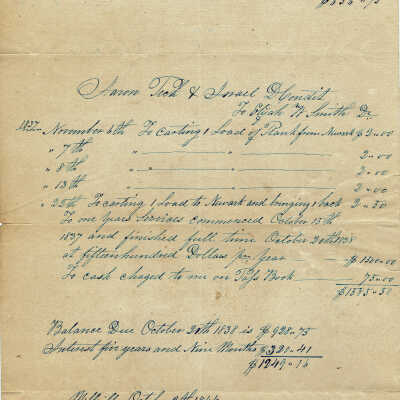 Aaron Peck & Israel D Condit
To Elijah W Smith Dr
1837 November 6th To carting 1 Load of Plank from Newark $2=00
" 7th " " 2=00
" 8th " " 2=00
" 13th " " 2=00
" 25th To carting 1 Load to Newark and bringing 1 back 2=50
To one years Services commenced October 15th
1837 and finished full time October 20th 1838
at fifteen hundred Dollars per Year
To cash charged to me on Pass Book 75=00
$1535=50
Balance Due October 20th 1838 is $928=75
Interest five years and Nine Months $320=41
$1249=16